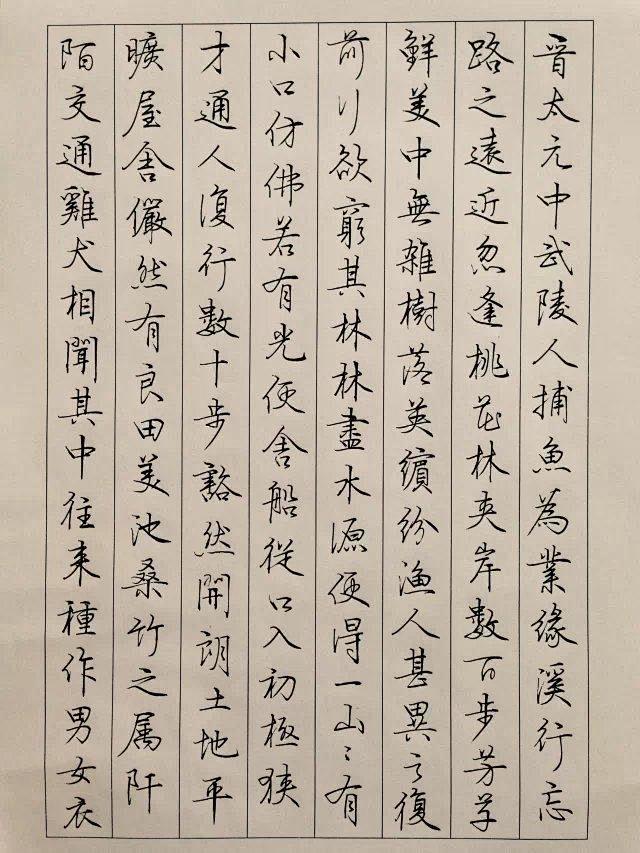 晋太元中武陵人捕魚為業緣溪行忘
路之遠近忽逢桃花林夹岸數百步芳草
鮮美中無雜樹落英繽紛漁人甚異之復
前行欲窮其林林盡水源便得一山〻有
小口仿佛若有光便舍船從口入初極狹
才通人復行數十步豁然開朗土地平
曠屋舍儼然有良田美池桑竹之属阡
陌交通雞犬相聞其中往来種作男女衣